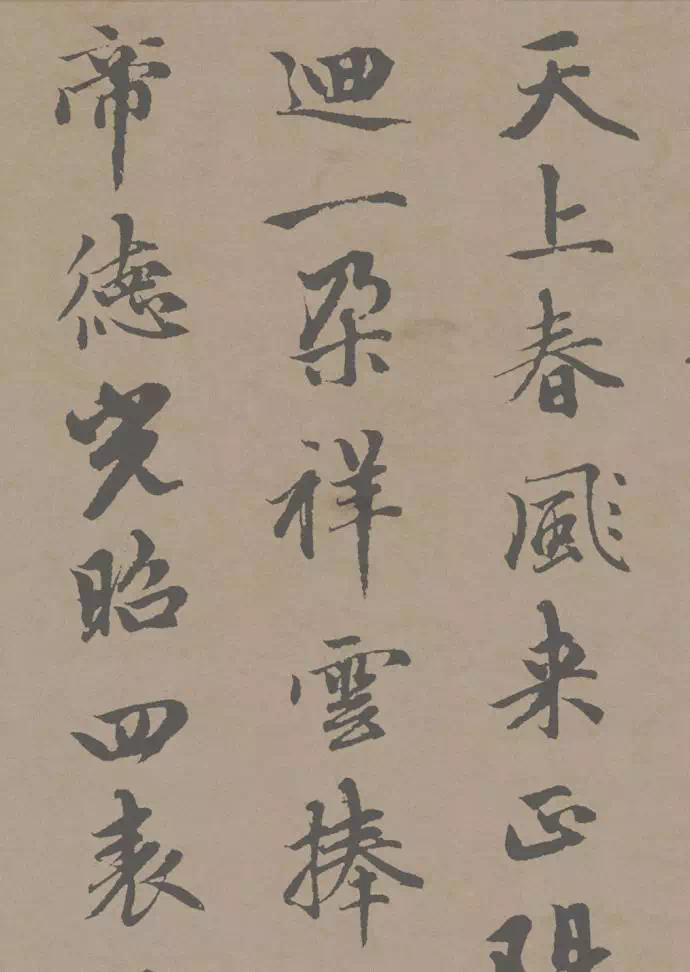 天上春風来正陽
迴一朶祥雲捧
帝德光昭四表